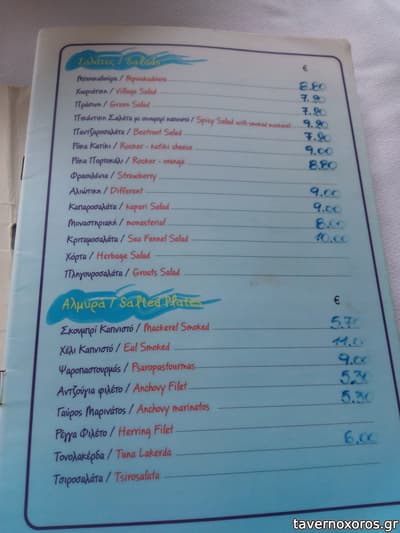 Σαλάτες / Salads €
Μπουκαδούρα / Mpoukadoura 8,80
Χωριάτικη / Village Salad 7,90
Πράσινη / Green Salad 7,80
Πικάντικη Σαλάτα με σκουμπρί καπνιστό / Spicy Salad with smoked mackerel 9,80
Παντζαροσαλάτα / Beetroot Salad 7,80
Ρόκα Κατίκι / Rocker - katiki cheese 9,00
Ρόκα Πορτοκάλι / Rocker - orange 8,80
Φραουλένια / Strawberry
Αλιώτικη / Different 9,00
Καπαροσαλάτα / kapari Salad 9,00
Μοναστηριακή / monasterial 8,00
Κριταμοσαλάτα / Sea Fannel Salad 10,00
Χόρτα / Herbage Salad
Πληγουροσαλάτα / Groats Salad
Αλμυρά / Salted Plates €
Σκουμπρί Καπνιστό / Mackerel Smoked 5,70
Χέλι Καπνιστό / Eal Smoked 11,00
Ψαροπαστουρμάς / Psaropastourmas 9,00
Αντζούγια φιλέτο / Anchovy Filet 5,30
Γαύρος Μαρινάτος / Anchovy marinatos 5,30
Ρέγγα Φιλέτο / Herring Filet
Τονολακέρδα / Tuna Lakerda 6,00
Τσιροσαλάτα / Tsirosalata
tavernoxoros.gr